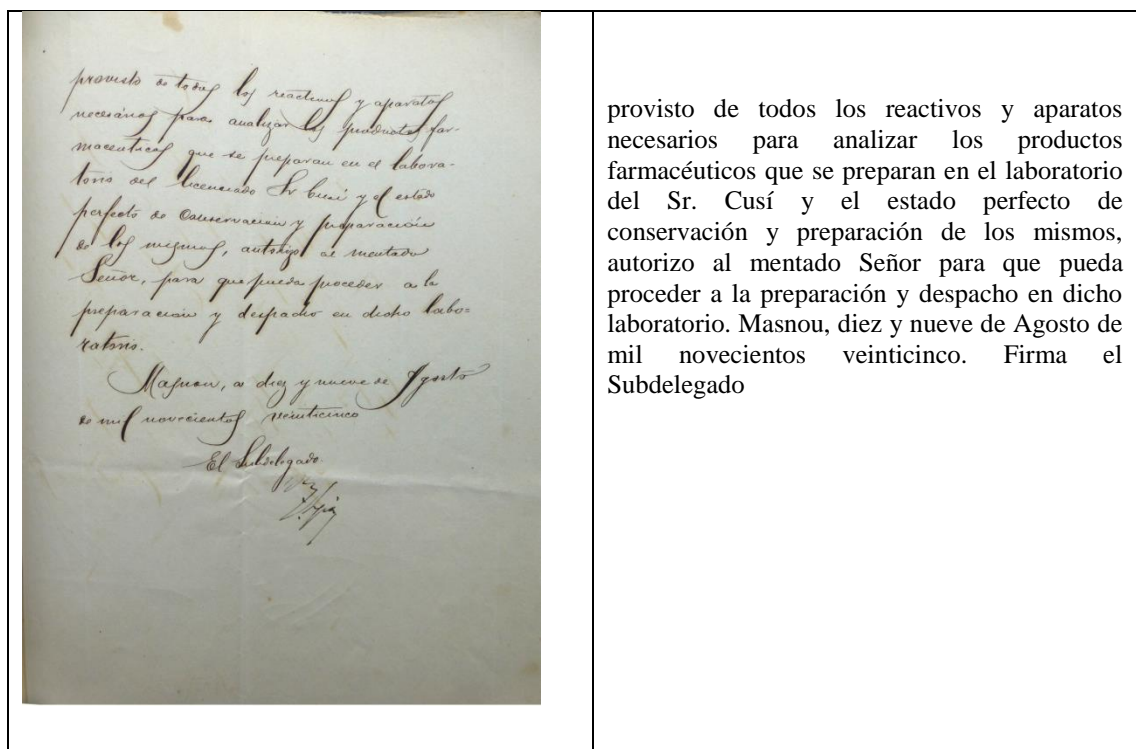 provisto de todos los reactivos y aparatos
necesários para analizar los productos far-
maceuticos que se preparan en el labora-
torio del licenciado Sr Cusí y el estado
perfecto de conservacion y preparación
de los mismos, autorizo al mentado
Señor, para que pueda proceder a la
preparación y despacho en dicho labo=
ratorio.
Masnou, a diez y nueve de Agosto
de mil novecientos veinticinco
El Subdelegado
provisto de todos los reactivos y aparatos
necesarios para analizar los productos
farmacéuticos que se preparan en el laboratorio
del Sr. Cusí y el estado perfecto de
conservación y preparación de los mismos,
autorizo al mentado Señor para que pueda
proceder a la preparación y despacho en dicho
laboratorio. Masnou, diez y nueve de Agosto de
mil novecientos veinticinco. Firma el
Subdelegado